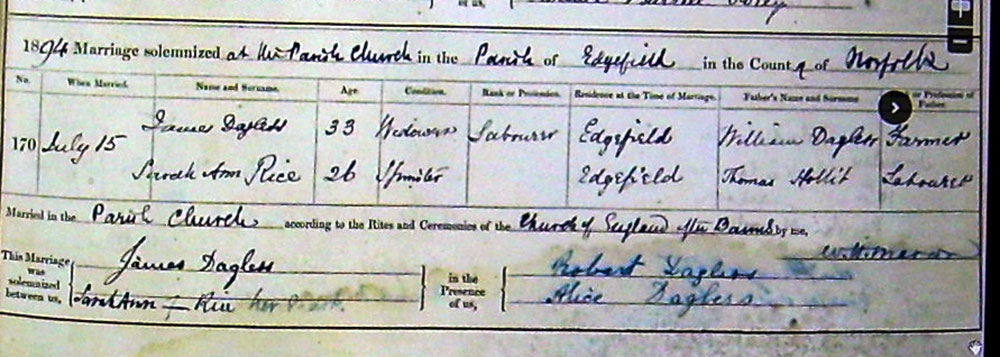 1894 Marriage solemnized at the Parish Church in the Parish of Edgefield in the County of Norfolk
No. When Married. Name and Surname. Age. Condition. Rank or Profession. Residence at the Time of Marriage. Father's Name and Surname or Profession of Father.
170 July 15 James Dagless 33 Widower Labourer Edgefield William Dagless Farmer
Sarah Ann Rice 26 Spinster Edgefield Thomas Hollit Labourer
Married in the Parish Church according to the Rites and Ceremonies of the Church of England after Banns by me,
This Marriage was solemnized between us, James Dagless in the Presence of us, Robert Dagless
Sarah Ann + Rice her mark Alice Dagless